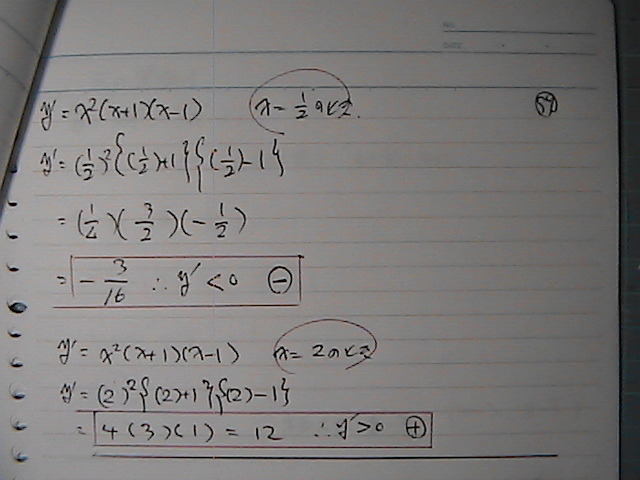 NO.
DATE
y' = x²(x+1)(x-1)  x = 1/2 のとき.  59
y' = (1/2)²{(1/2)+1}{(1/2)-1}
= (1/4)(3/2)(-1/2)
= -3/16 ∴ y' < 0 ⊖
y' = x²(x+1)(x-1)  x = 2 のとき
y' = (2)²{(2)+1}{(2)-1}
= 4(3)(1) = 12 ∴ y' > 0 ⊕